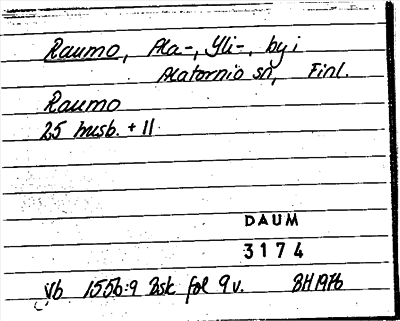 Raumo, Ala-, Yli-, by i
Alatornio sn, Finl.
Raumo
25 husb. + 11
DAUM
3174
Vb 1556:9 Bsk fol 9v. BH 1976